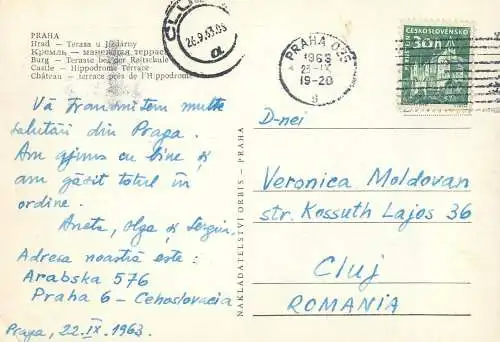 PRAHA
Hrad — Terasa u Jízdárny
Кремль — манежная терраса
Burg — Terasse bei der Reitschule
Castle — Hippodrome Terrace
Château — terrace près de l'Hippodrome
CLUJ
26.9.63.05
a
PRAHA 025
1963
19-20
ČESKOSLOVENSKO
30h
Vă transmitem multe
salutări din Praga.
Am ajuns cu bine și
am găsit totul în
ordine.
Aneta, Olga și Sergiu.
Adresa noastră este:
Arabska 576
Praha 6 - Cehoslovacia
Praga, 22.IX.1963.
NAKLADATELSTVÍ ORBIS - PRAHA
D-nei
Veronica Moldovan
str. Kossuth Lajos 36
Cluj
ROMANIA